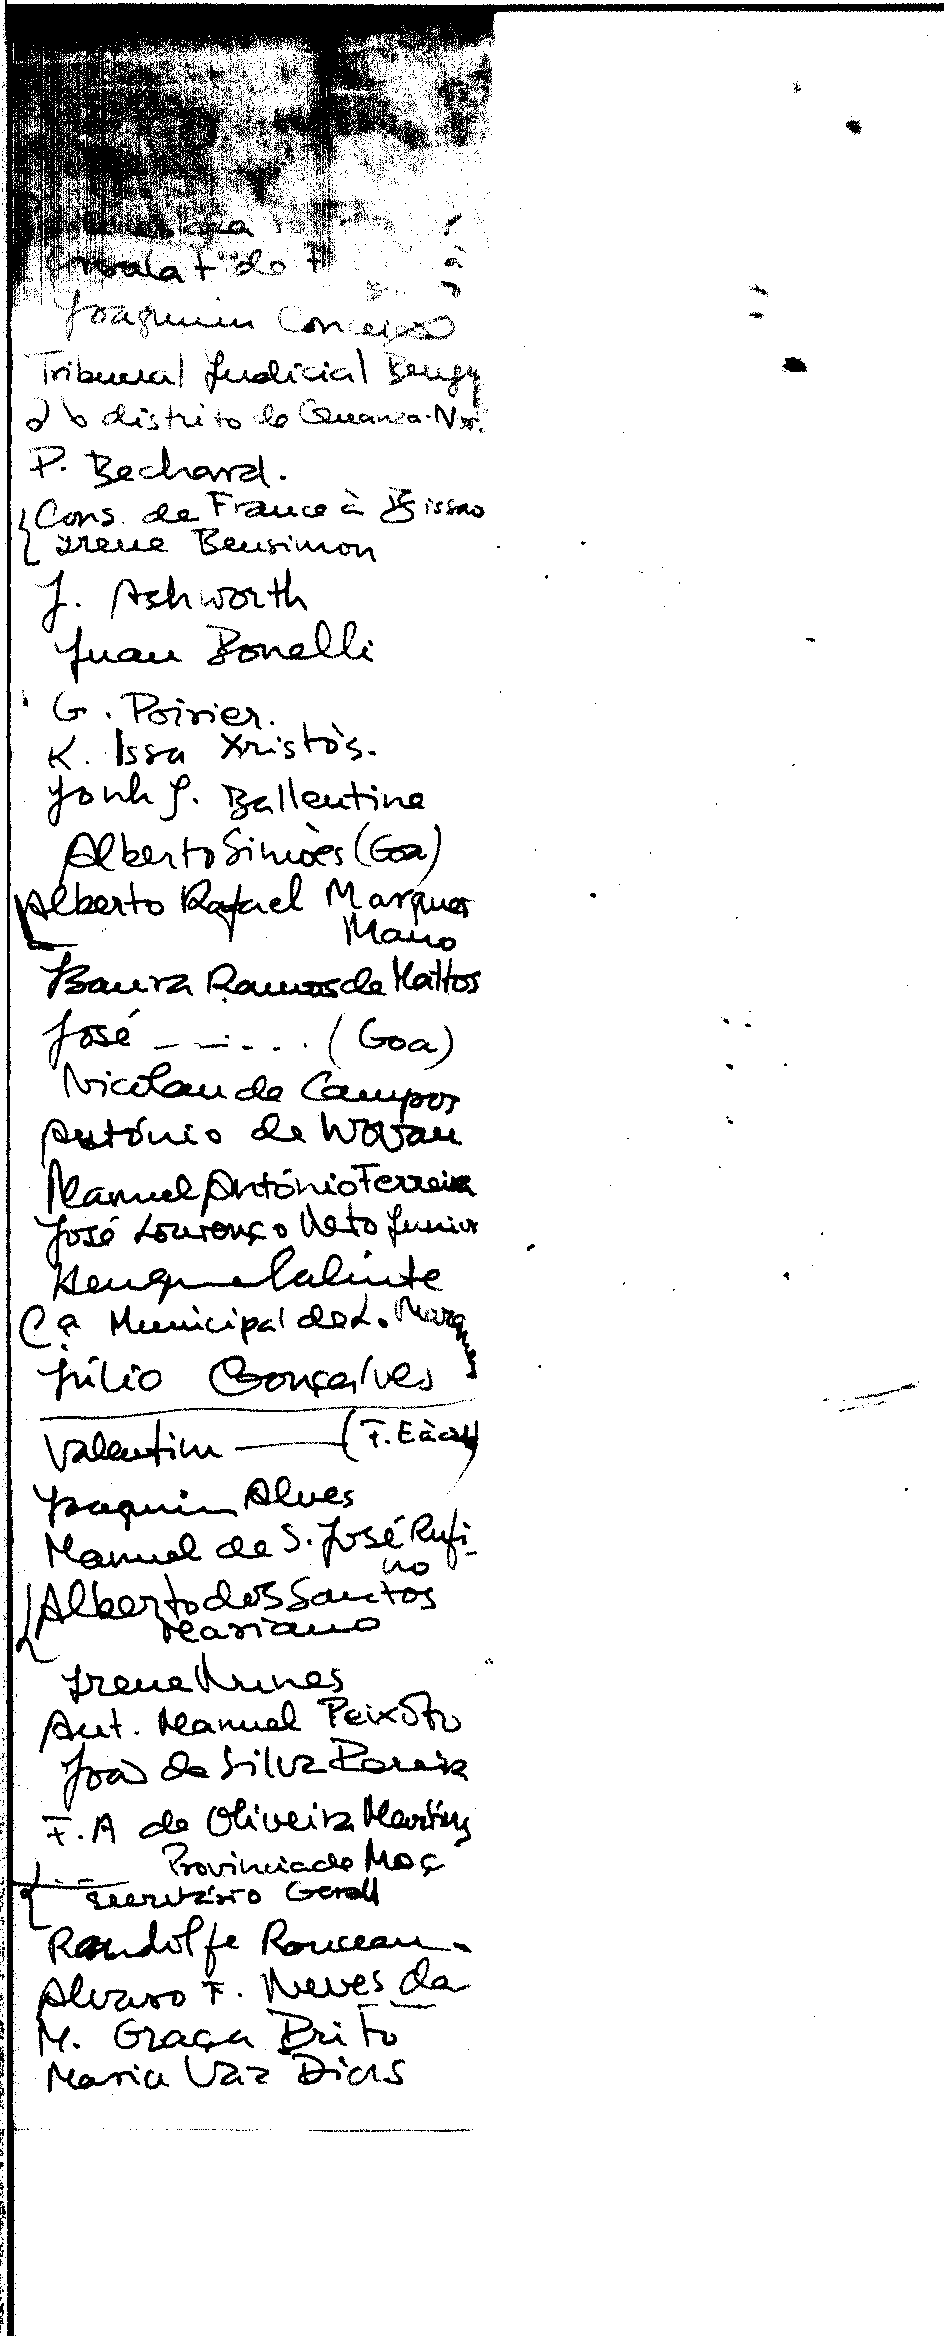 Joaquim Conceição
Tribunal Judicial
do distrito de Quanza-Nor.
P. Bechard.
Cons. de France à Bissao
Irene Bensimon
J. Ashworth
Juan Bonelli
G. Poirier.
K. Issa Xristòs.
Jonh J. Ballentine
Alberto Simões (Goa)
Alberto Rafael Marques
Mano
Isaura Ramos de Mattos
José _ _ . _ . . . (Goa)
Nicolau de Campos
António de
Manuel António Ferreira
José Lourenço Neto Junior
Cª Municipal de L. Marques
Júlio Gonçalves
Valentim — (F.
Joaquim Alves
Manuel de S. José Rufi-
no
Alberto dos Santos
Mariano
Irene Nunes
Ant. Manuel Peixoto
João da Silva
F. A de Oliveira Martins
Provincia de Moç
Secretário Geral
Randolfe
Alvaro F. Neves da
M. Graça Brito
Maria Vaz Dias